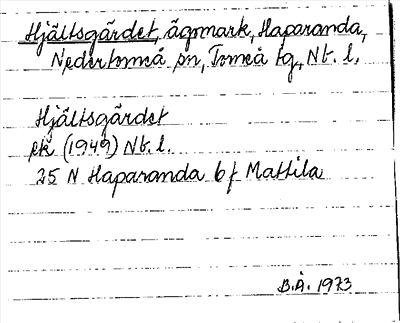 Hjältsgärdet, ägomark, Haparanda,
Nedertorneå sn, Torneå tg, Nb. l.
Hjältsgärdet
ek (1949) Nb. l.
25 N Haparanda b f Mattila
B.Å. 1973